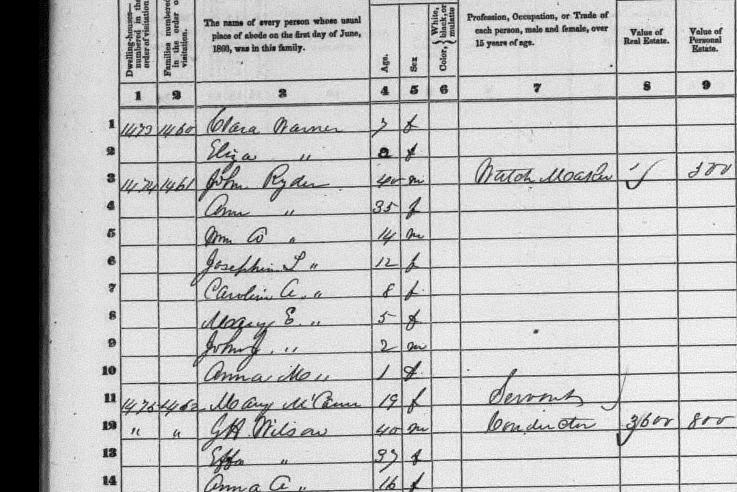 Dwelling-houses— numbered in the order of visitation.
Families numbered in the order of visitation.
The name of every person whose usual place of abode on the first day of June, 1860, was in this family.
Age.
Sex
Color, { White, black, or mulatto
Profession, Occupation, or Trade of each person, male and female, over 15 years of age.
Value of Real Estate.
Value of Personal Estate.
1 2 3 4 5 6 7 8 9
1 1473 1460 Clara Warner 7 f
2 Eliza " f
3 1474 1461 John Ryder 40 m Watch Maker 300
4 Ann " 35 f
5 Wm " 14 m
6 Josephin L " 12 f
7 Carolin A. " 8 f
8 Mary E. " 5 f
9 John J. " 2 m
10 Anna M " 1 f
11 1475 1462 Mary McCann 19 f Servant
12 " " Wilson 40 m Conductor 3600 800
13 Effa " 37 f
14 Anna A " 16 f